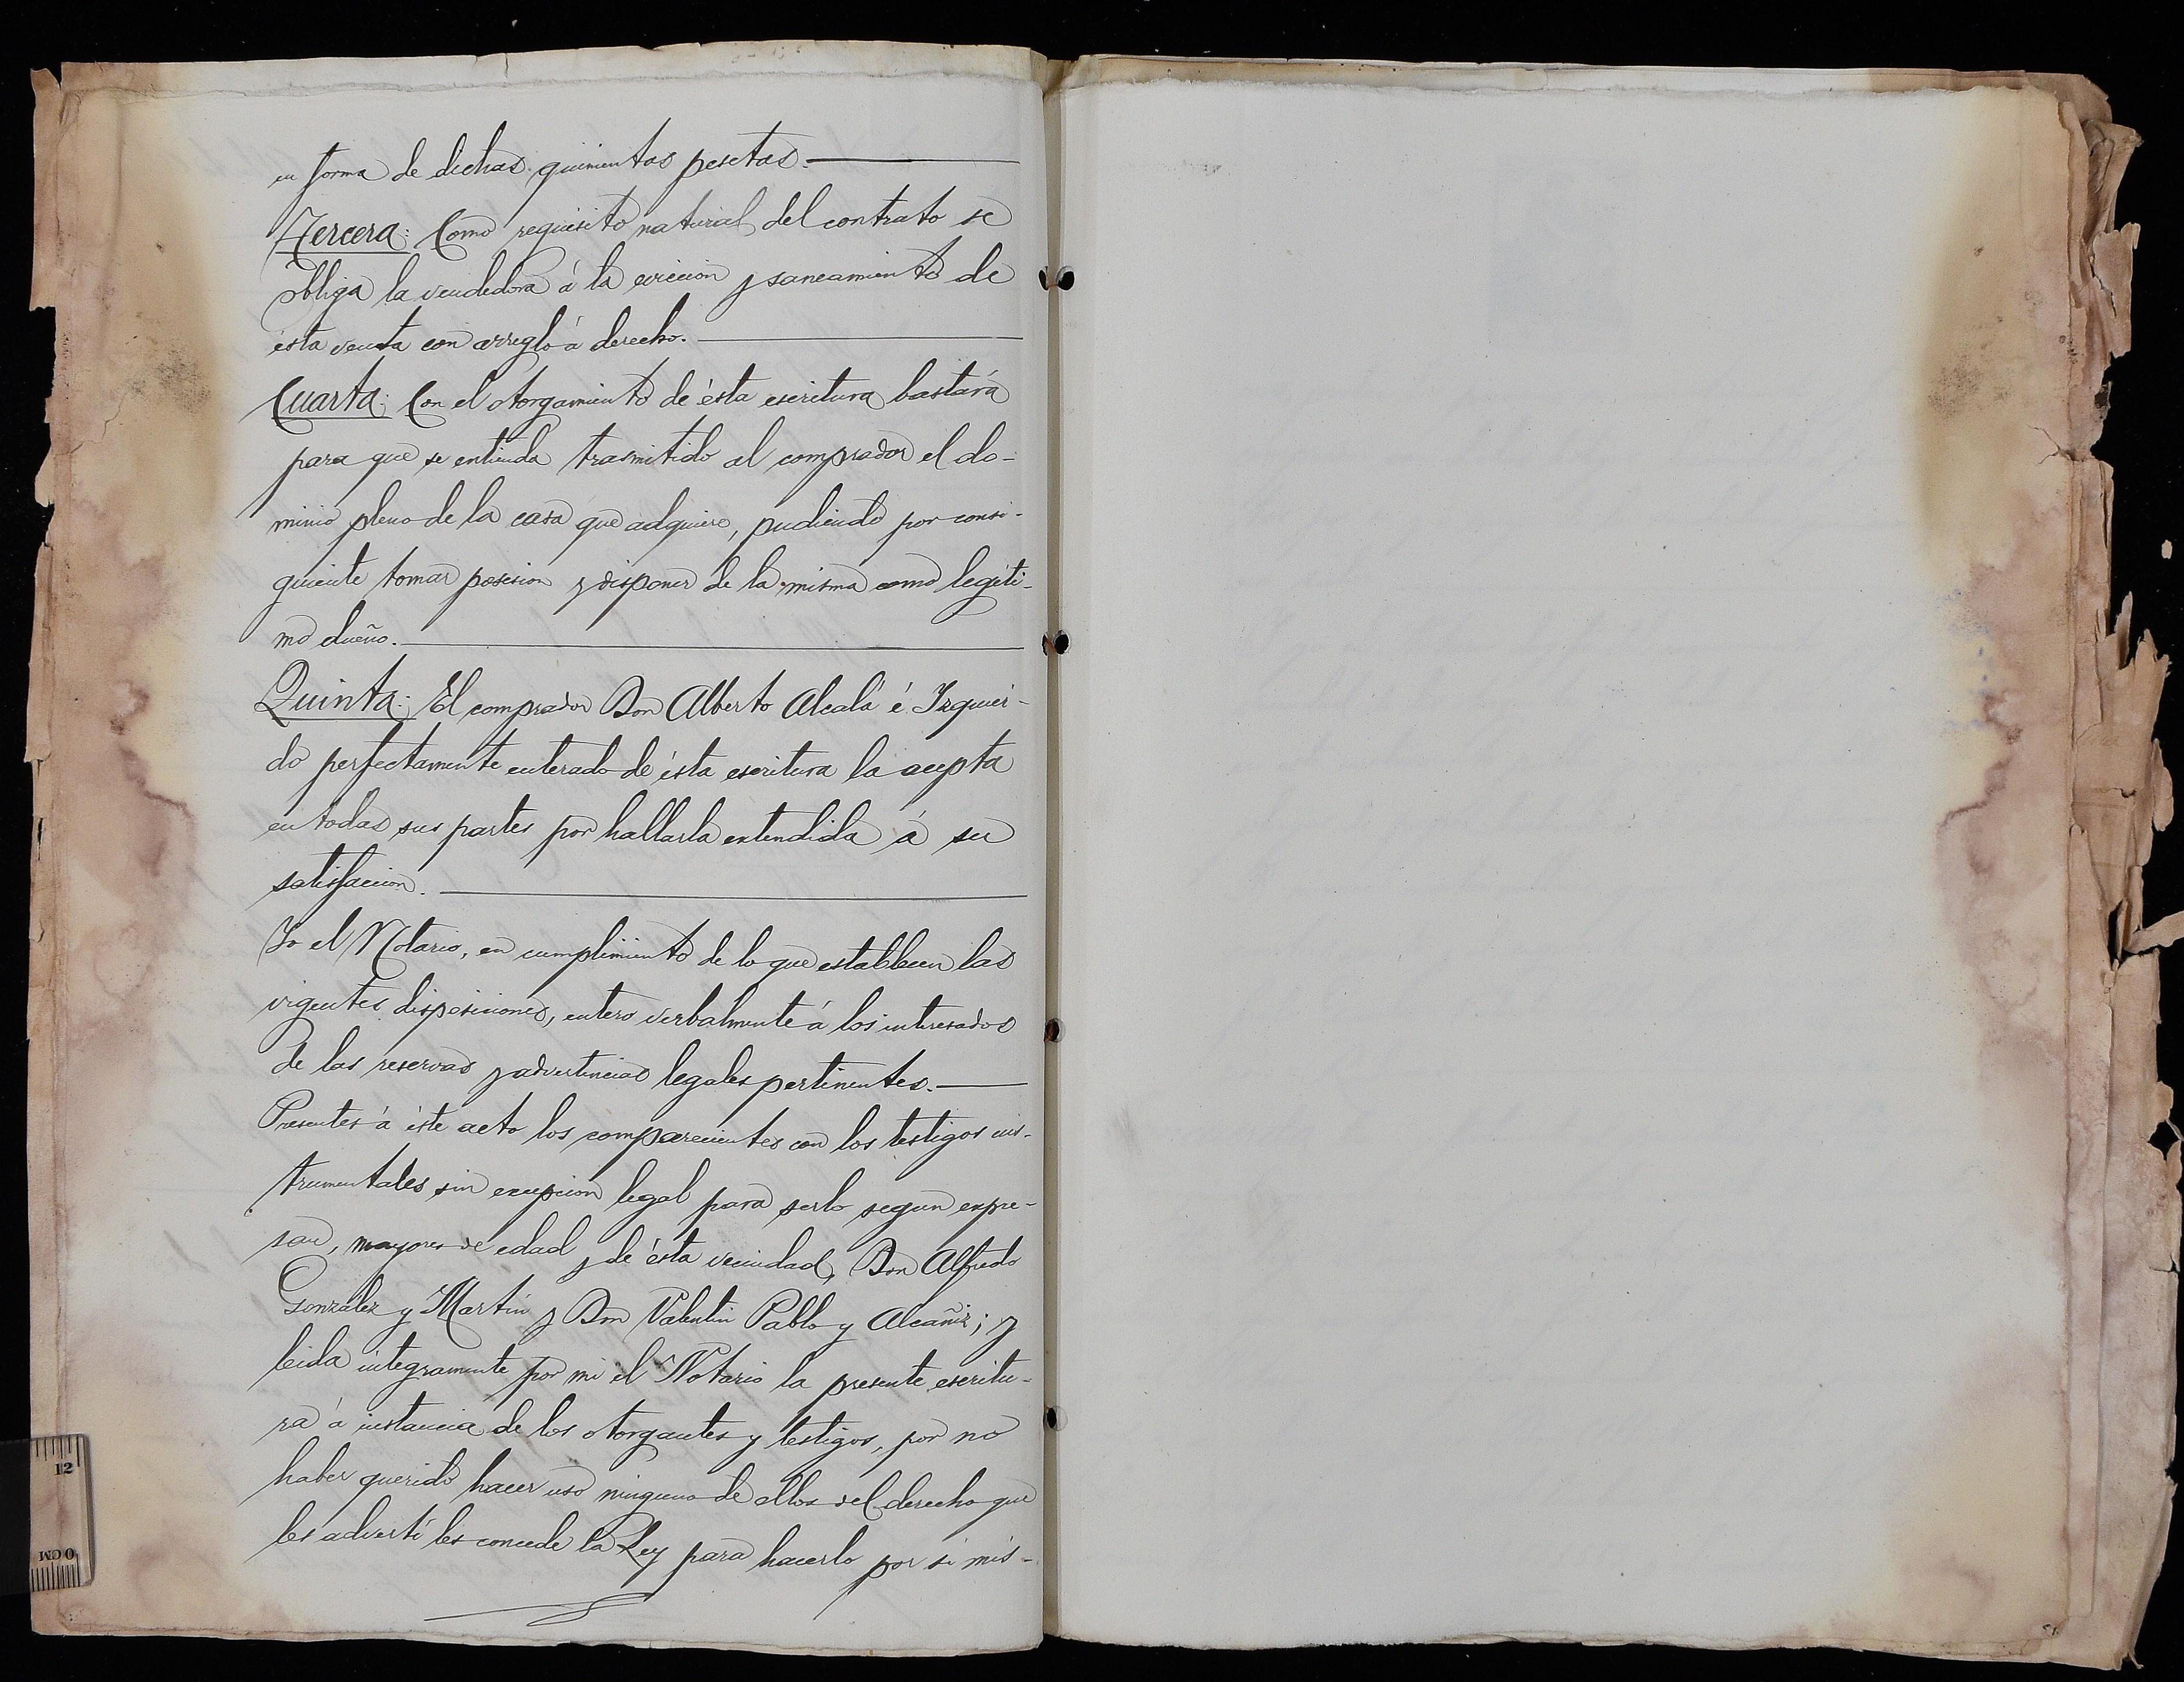 en forma de dichas quinientas pesetas.
Tercera: Como requisito natural del contrato se
obliga la vendedora á la evicción y saneamiento de
ésta venta con arreglo á derecho.
Cuarta: Con el otorgamiento de ésta escritura bastará
para que se entienda trasmitido al comprador el do-
minio pleno de la casa que adquiere, pudiendo por consi-
guiente tomar posesion y disponer de la misma como legíti-
mo dueño.
Quinta: El comprador Don Alberto Alcalá é Izquier-
do perfectamente enterado de ésta escritura la acepta
en todas sus partes por hallarla extendida á su
satisfaccion.
Yo el Notario, en cumplimiento de lo que establecen las
vigentes disposiciones, entero verbalmente á los interesados
de las reservas y advertencias legales pertinentes.
Presentes á éste acto los comparecientes con los testigos ins-
trumentales sin excepcion legal para serlo segun expre-
san, mayores de edad y de ésta vecindad, Don Alfredo
González y Martín y Don Valentin Pablo y Alcañiz; y
leida integramente por mi el Notario la presente escritu-
ra á instancia de los otorgantes y testigos, por no
haber querido hacer uso ninguno de ellos del derecho que
les advertí les concede la Ley para hacerlo por si mis-
12
0 CM